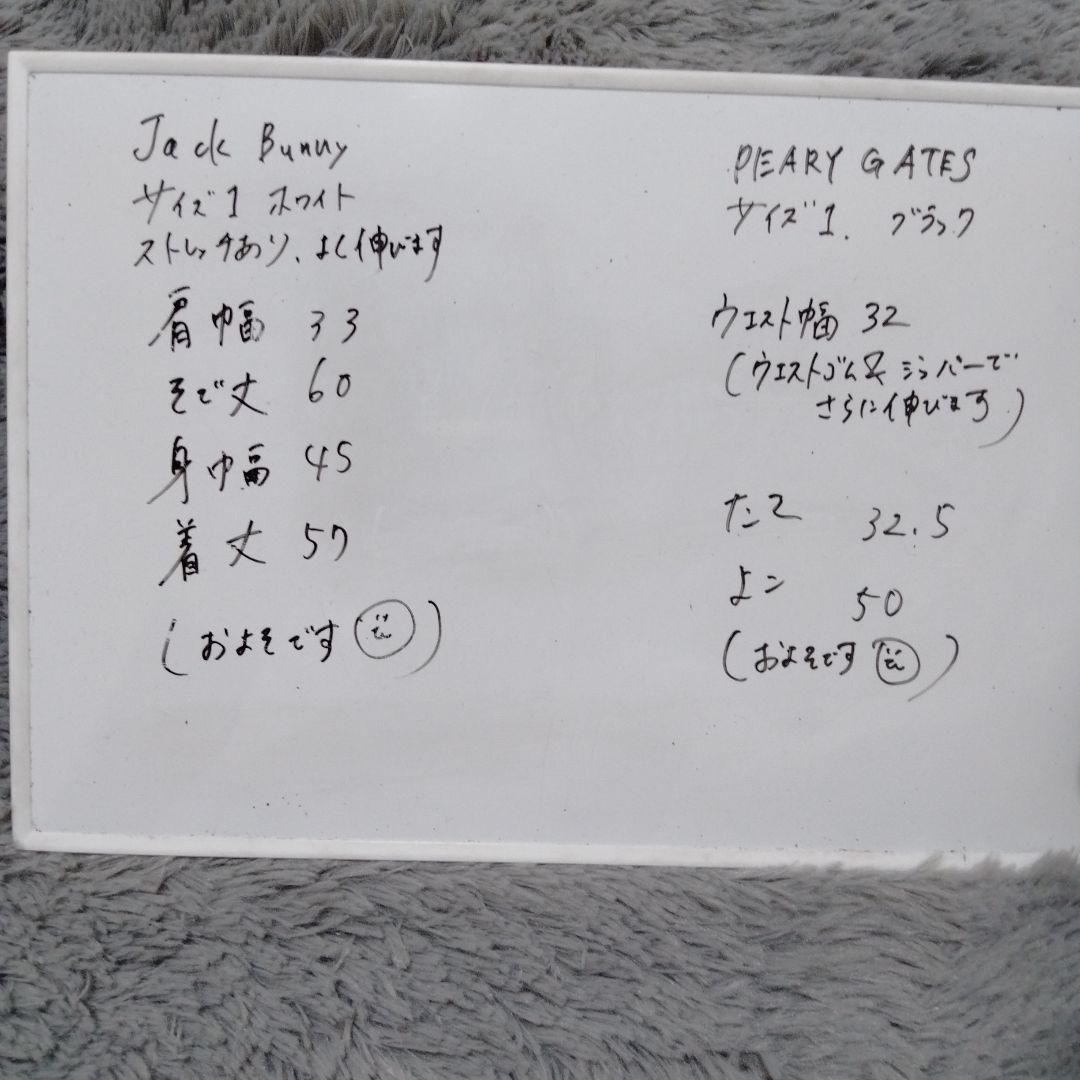 Jack Bunny
サイズ1 ホワイト
ストレッチあり、よく伸びます
肩幅 33
そで丈 60
身幅 45
着丈 57
(およそです)
PEARY GATES
サイズ1. ブラック
ウエスト幅 32
(ウエストゴム& ジッパーで
さらに伸びます)
たて 32.5
よこ 50
(およそです)